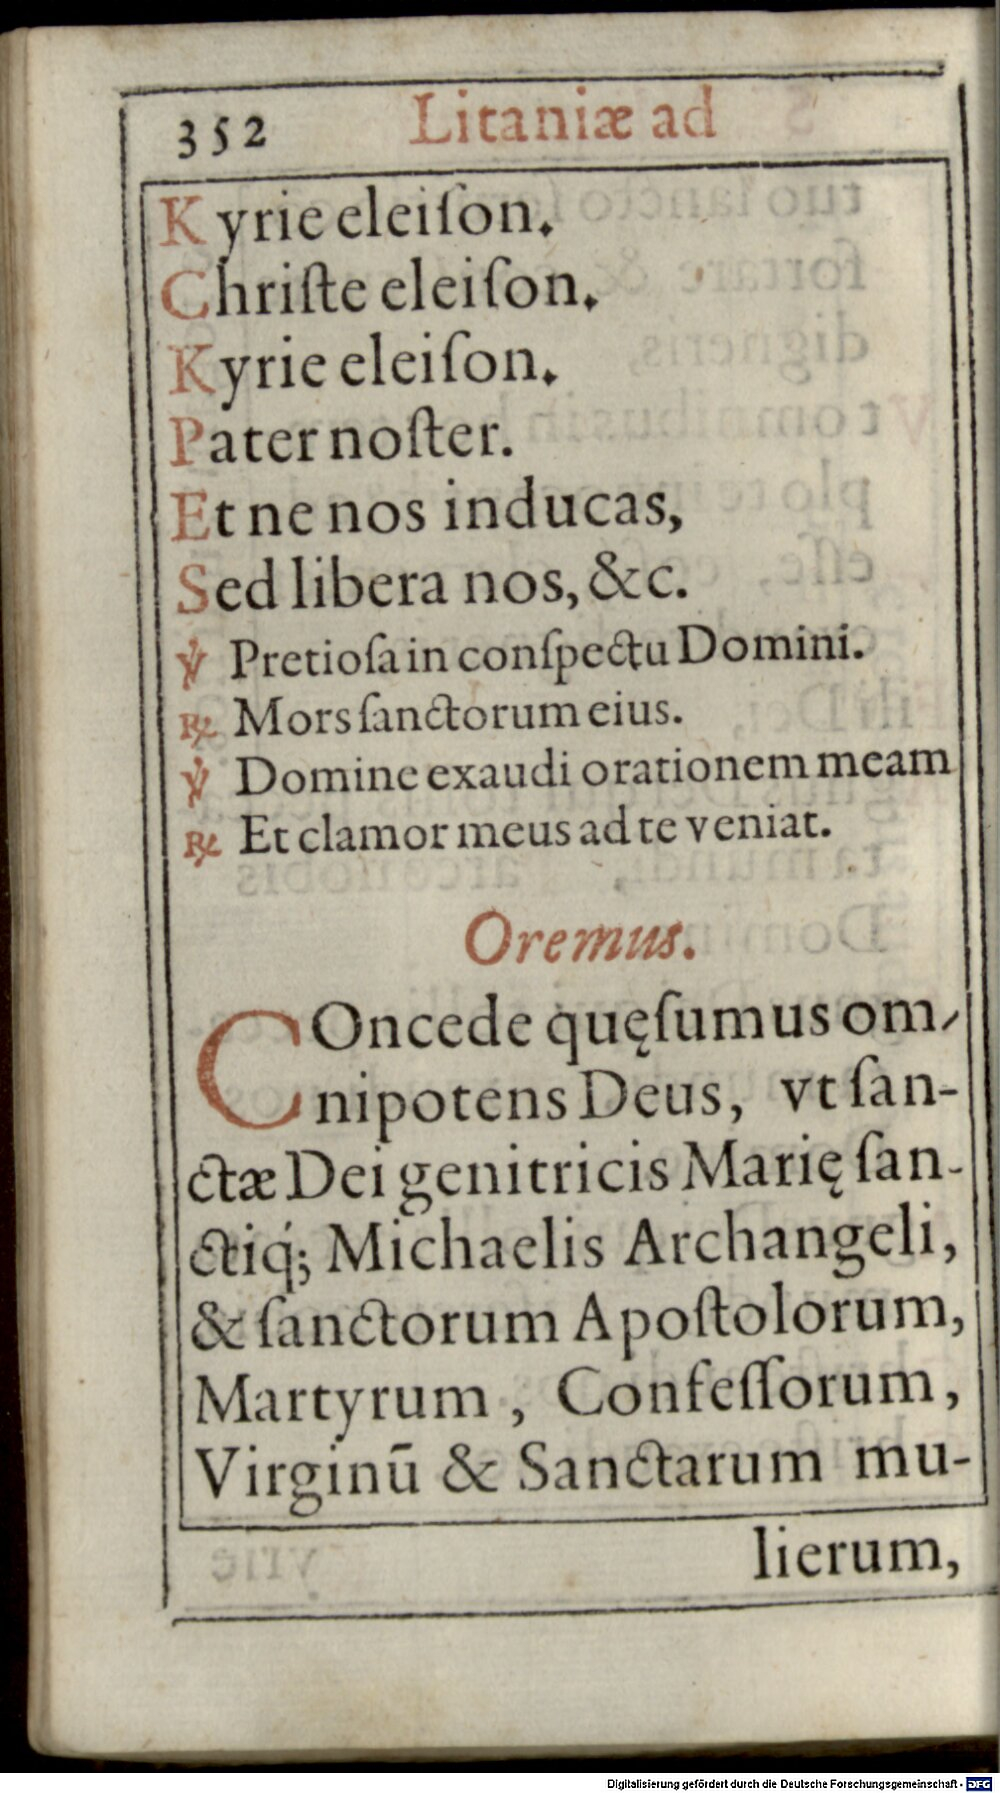 352 Litaniæ ad
Kyrie eleiſon.
Chriſte eleiſon.
Kyrie eleiſon.
Pater noſter.
Et ne nos inducas,
Sed libera nos, &c.
℣ Pretioſa in conſpectu Domini.
℟ Mors ſanctorum eius.
℣ Domine exaudi orationem meam
℟ Et clamor meus ad te veniat.
Oremus.
COncede quęſumus om-
nipotens Deus, vt ſan-
ctæ Dei genitricis Marię ſan-
ctiq́; Michaelis Archangeli,
& ſanctorum Apoſtolorum,
Martyrum, Confeſſorum,
Virginū & Sanctarum mu-
lierum,
Digitalisierung gefördert durch die Deutsche Forschungsgemeinschaft - DFG